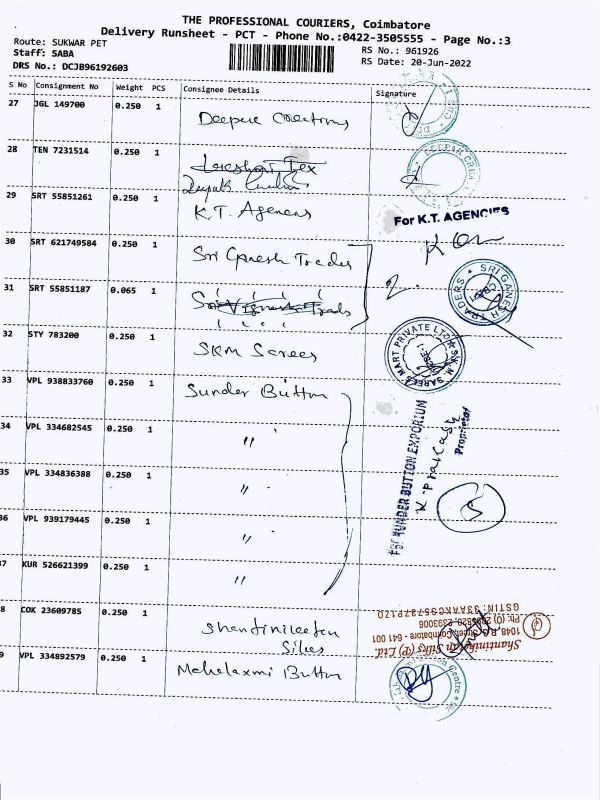 THE PROFESSIONAL COURIERS, Coimbatore
Delivery Runsheet - PCT - Phone No.:0422-3505555 - Page No.:3
Route: SUKWAR PET
Staff: SABA
DRS No.: DCJB96192603
RS No.: 961926
RS Date: 20-Jun-2022
S No Consignment No Weight PCS Consignee Details Signature
27 JGL 149700 0.250 1
28 TEN 7231514 0.250 1
29 SRT 55851261 0.250 1 K.T. Agencies
For K.T. AGENCIES
30 SRT 621749584 0.250 1 Sri Ganesh Trades
2.
SRI GANESH TRADERS
31 SRT 55851187 0.065 1 Sri Vignesh Trads
32 STY 783200 0.250 1 SKM Sarees
S.K.M. SAREES MART PRIVATE LTD
33 VPL 938833760 0.250 1 Sunder Button
34 VPL 334682545 0.250 1 "
35 VPL 334836388 0.250 1 "
36 VPL 939179445 0.250 1 "
37 KUR 526621399 0.250 1 "
BUTTON EMPORIUM
K. Prakash
Proprietor
8 COK 23609785 0.250 1 Shantiniketan
Silks
Shantiniketan Silks (P) Ltd.
Coimbatore - 641 001
9 VPL 334892579 0.250 1 Mahalaxmi Button
Centre